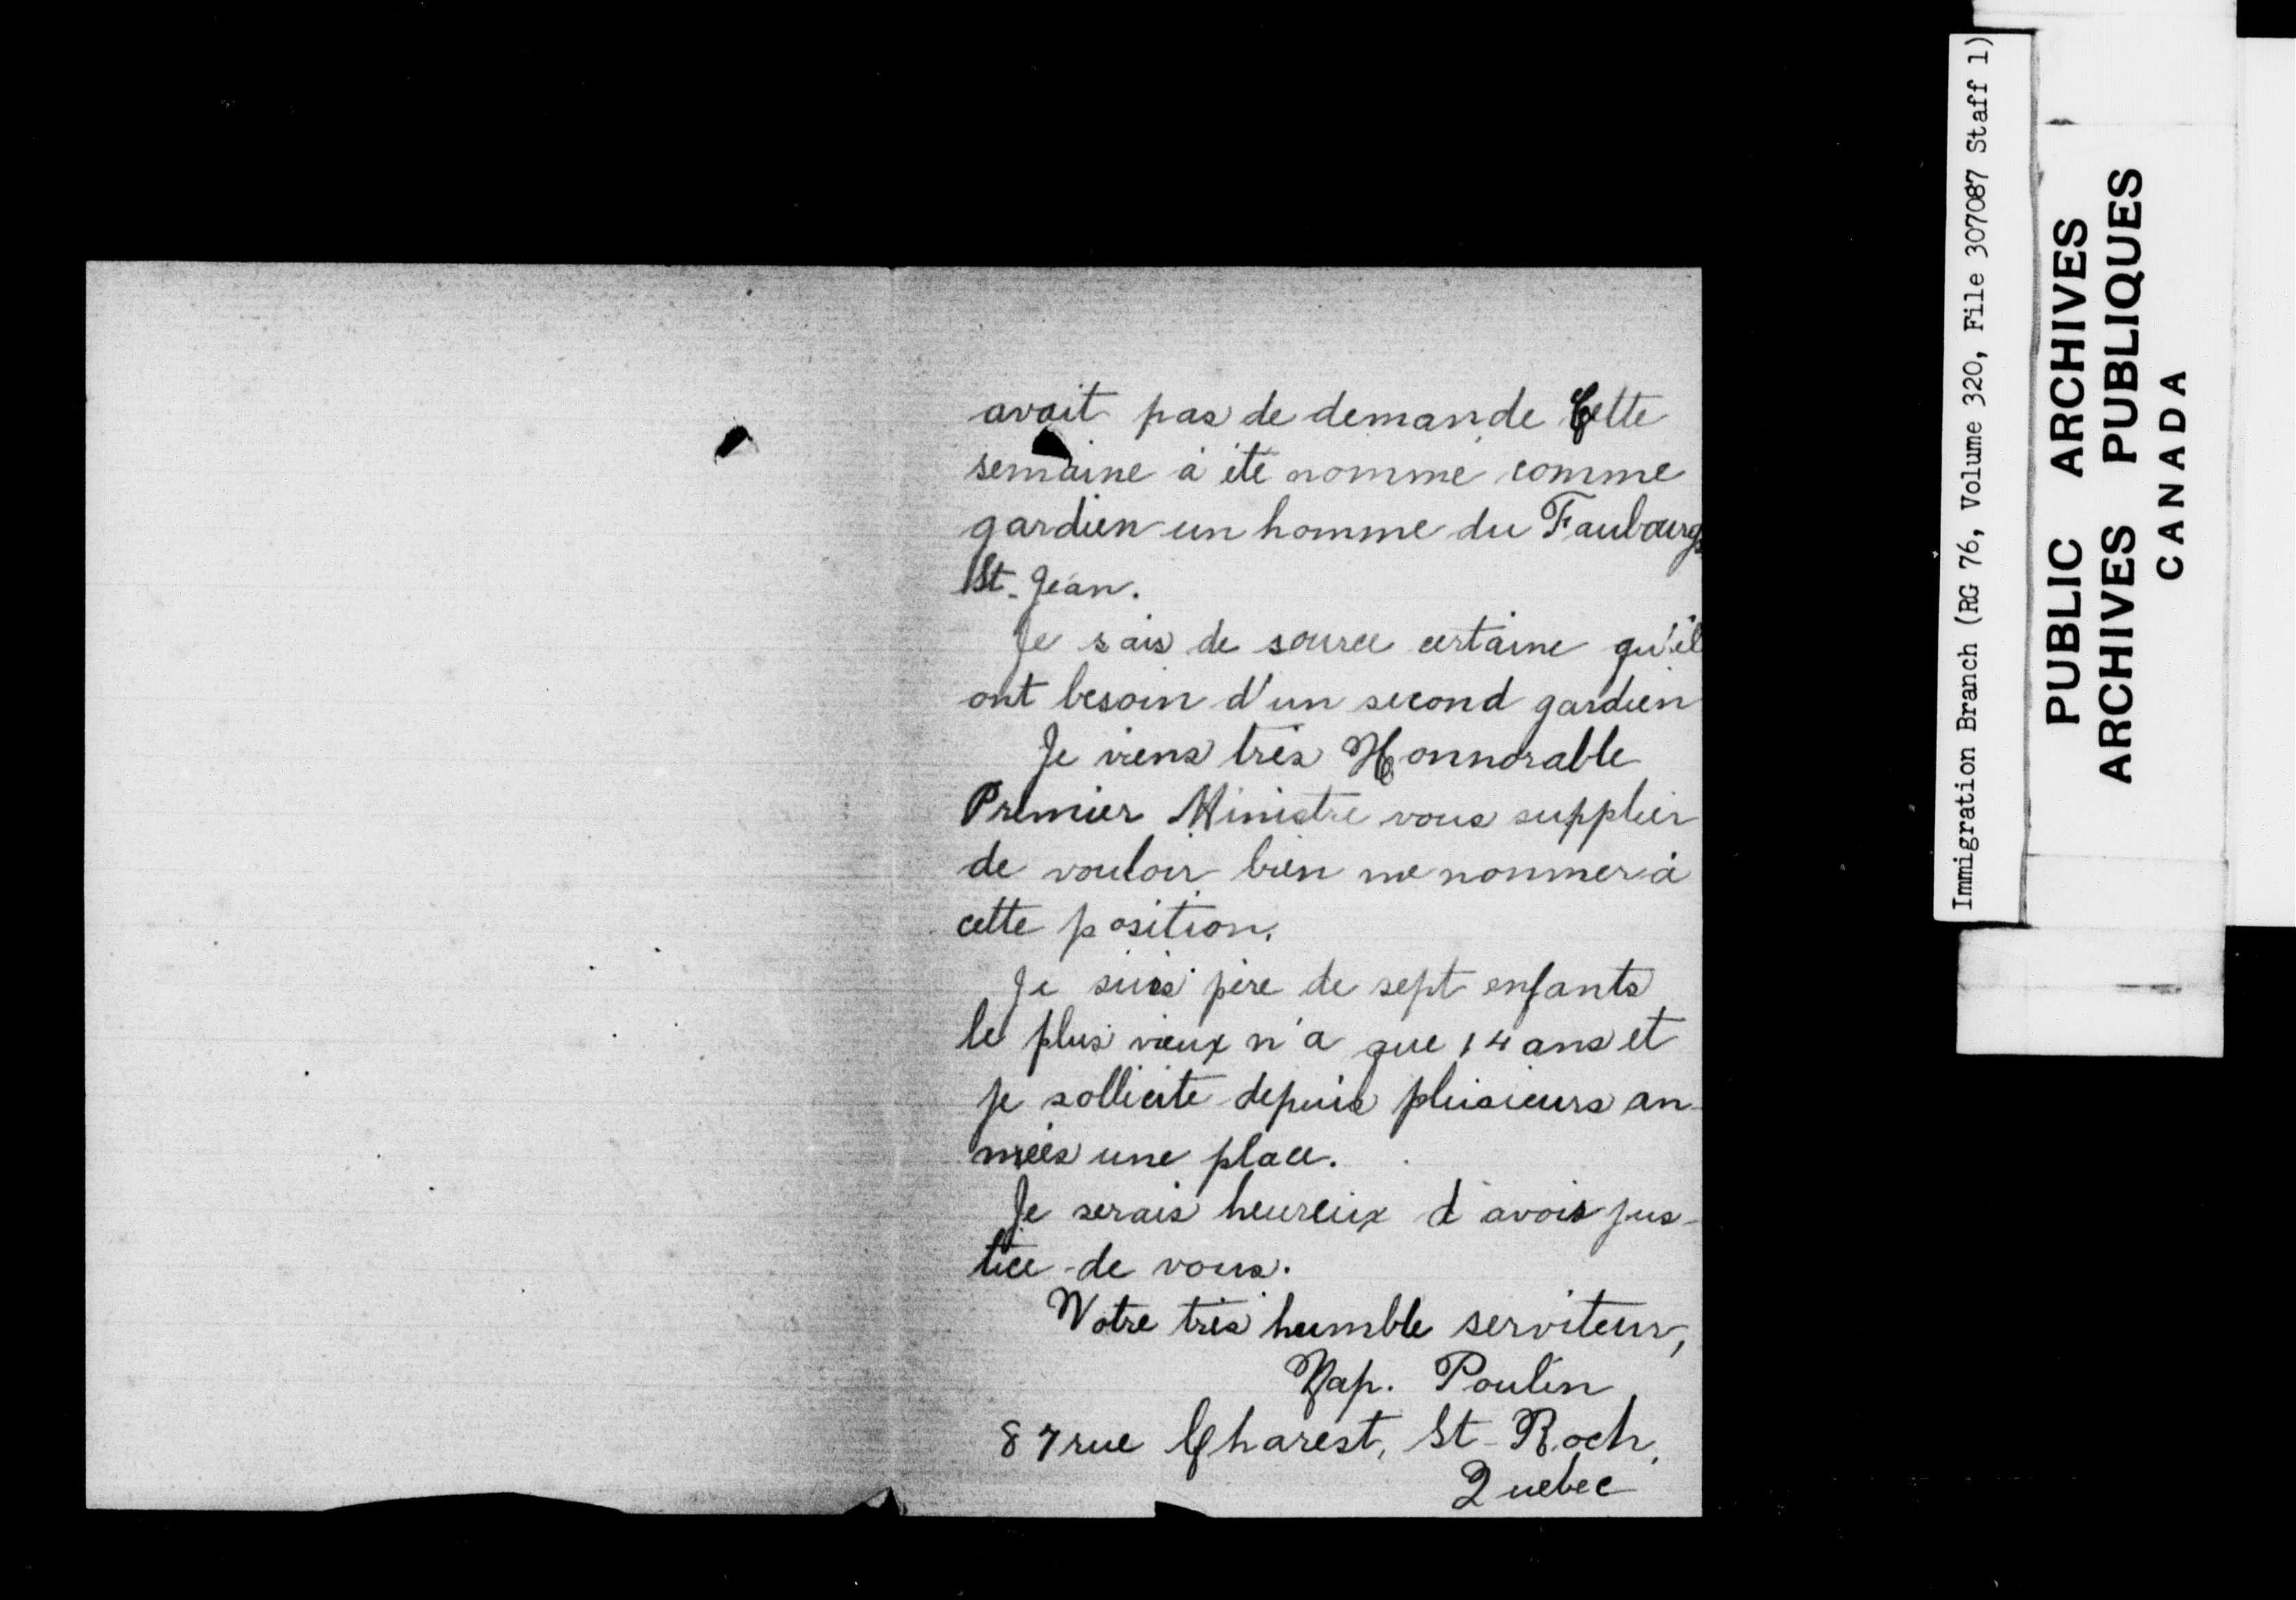 avait pas de demande Cette
semaine à été nommé comme
gardien un homme du Faubourg
St-Jean.
Je sais de source certaine qu'il
ont besoin d'un second gardien
Je viens très Honnorable
Premier Ministre vous supplier
de vouloir bien me nommer à
cette position.
Je suis père de sept enfants
le plus vieux n'a que 14 ans et
je sollicite depuis plusieurs an-
nées une place.
Je serais heureux d'avoir jus-
tice de vous.
Votre très humble serviteur,
Nap. Poulin
87 rue Charest, St-Roch,
Quebec
Immigration Branch (RG 76, Volume 320, File 307087 Staff 1)
PUBLIC ARCHIVES
ARCHIVES PUBLIQUES
CANADA